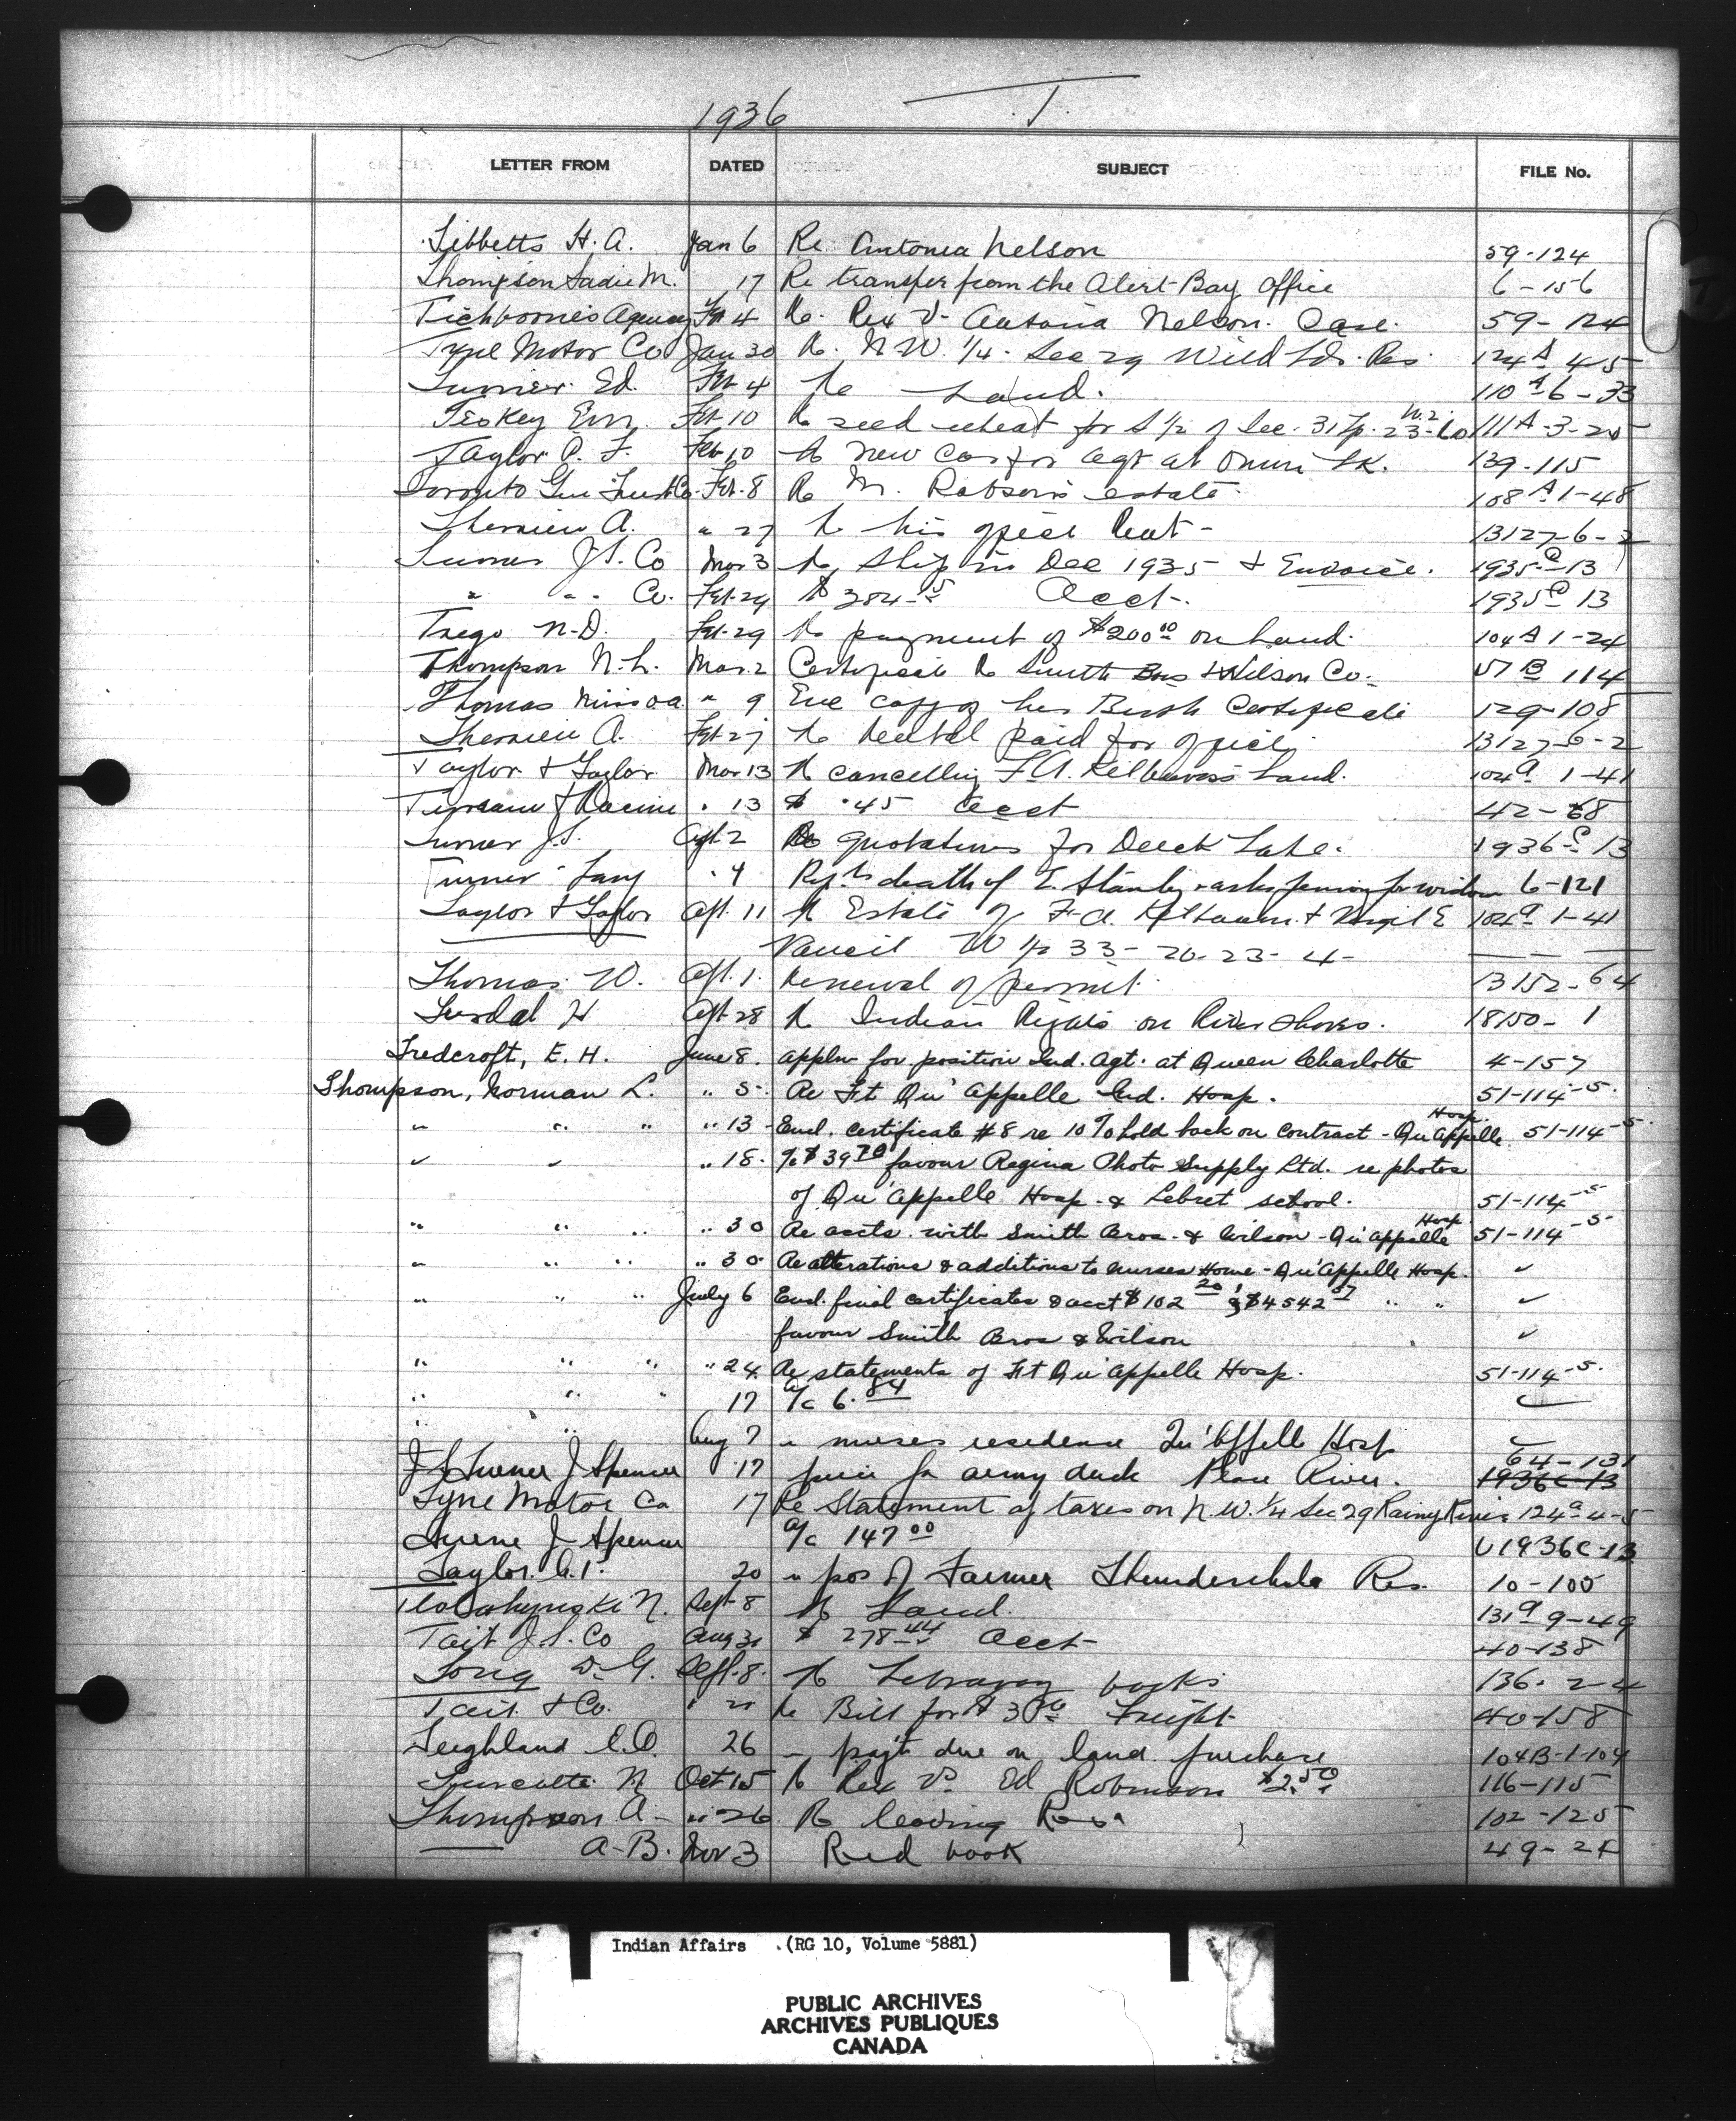 1936 T.
LETTER FROM DATED SUBJECT FILE No.
Tibbetts H. A. Jan 6 Re Antonia Nelson 59-124
Thompson Sadie M. 17 Re transfer from the Alert Bay Office 6-156
Tichborne's Agency Feb 4 Re. Rex v. Antonia Nelson. Case. 59-124
Tyne Motor Co Jan 30 Re. N.W. 1/4. Sec 29 Wild Lds. Res. 124A 4-5
Turner Ed. Feb 4 Re Land. 110A 6-33
Teokey Feb 10 Re seed wheat for S 1/2 of Sec. 31 Tp. 23-10 W.2. 111A-3-20
Taylor P. F. Feb 10 Re New Car for Agt at Lk. 139-115
Toronto Gen Trust Co. Feb. 8 Re M. Robson's estate. 108A 1-48
Therrien A. " 27 Re his Rent - 13127-6-2
Turner J.S. Co Mar 3 Re Ship in Dec 1935 & Invoice. 1935C 13
" " Co. Feb. 29 Acct. 1935C 13
Trego N.D. Feb. 29 Re payment of $200 00 on Land. 104A 1-24
Thompson N.L. Mar. 2 Certificate Re Smith Bros & Wilson Co. 51B 114
Thomas Miss O.A. " 9 Enc copy of her Birth Certificate 129-108
Therrien A. Feb. 27 Re Rental paid for 13127-6-2
Taylor & Taylor Mar 13 Re cancelling F.A. Land. 104A 1-41
& Racine " 13 $ .45 Acct 42-68
Turner J.S. Apl. 2 Re quotations for Lake. 1936-C 13
Turner 4 Rept death of Stanley & asks pension for widow 6-121
Taylor & Taylor Apl. 11 Re Estate of F.A. & Virgil E 104A 1-41
Vancil W 1/2 33-20-23-4-
Thomas W. Apl. 1. Renewal of permit. 13152-64
H Apl 28 Re Indian Rights on River shores. 18150-1
Tredcroft, E. H. June 8. Appln for position Ind. Agt. at Queen Charlotte 4-157
Thompson, Norman L. " 5. Re Ft Qu'Appelle Ind. Hosp. 51-114-5.
" " " " 13 Encl. certificate #8 re 10% hold back on contract - Qu'Appelle Hosp. 51-114-5.
" " " 18. a/c $39 70 favour Regina Photo Supply Ltd. re photos
of Qu'Appelle Hosp. & Lebret school. 51-114-5
" " " " 30 Re accts. with Smith Bros. & Wilson - Qu'Appelle Hosp. 51-114-5-
" " " " 30 Re alterations & additions to nurses Home - Qu'Appelle Hosp. ✓
" " " July 6 Encl. final certificates & acct $102 20 & $4542 57 " " ✓
favour Smith Bros & Wilson ✓
" " " " 24 Re statements of Ft Qu'Appelle Hosp. 51-114-5.
" " " 17 a/c 6.84
" " Aug 7 " nurses residence Qu'Appelle Hosp
J S Turner J Spencer 17 price for army duck Peace River. 64-131 1936C-13
Tyne Motor Co 17 Re Statement of taxes on N.W. 1/4 Sec 29 Rainy River 124a 4-5
Turner J Spencer a/c 147 00 U1936C-13
Taylor. 20 " pos of Farmer Thunderchild Res. 10-100
N. Sept 8 Re Land. 131a 9-49
Tait J.S. Co Aug 31 $ 278 44 Acct 40-138
Tong D.G. Sept. 8. Re Library books 136-2-4
Tait & Co. Re Bill for Freight 40-158
26 " payt due on land purchase 104B-1-104
Turcotte N Oct 15 Re Rex vs Ed Robinson $2.50 116-115
Thompson A. " 26 Re leaving 102-125
A.B. Nov 3 Red book 49-2
Indian Affairs . (RG 10, Volume 5881)
PUBLIC ARCHIVES
ARCHIVES PUBLIQUES
CANADA